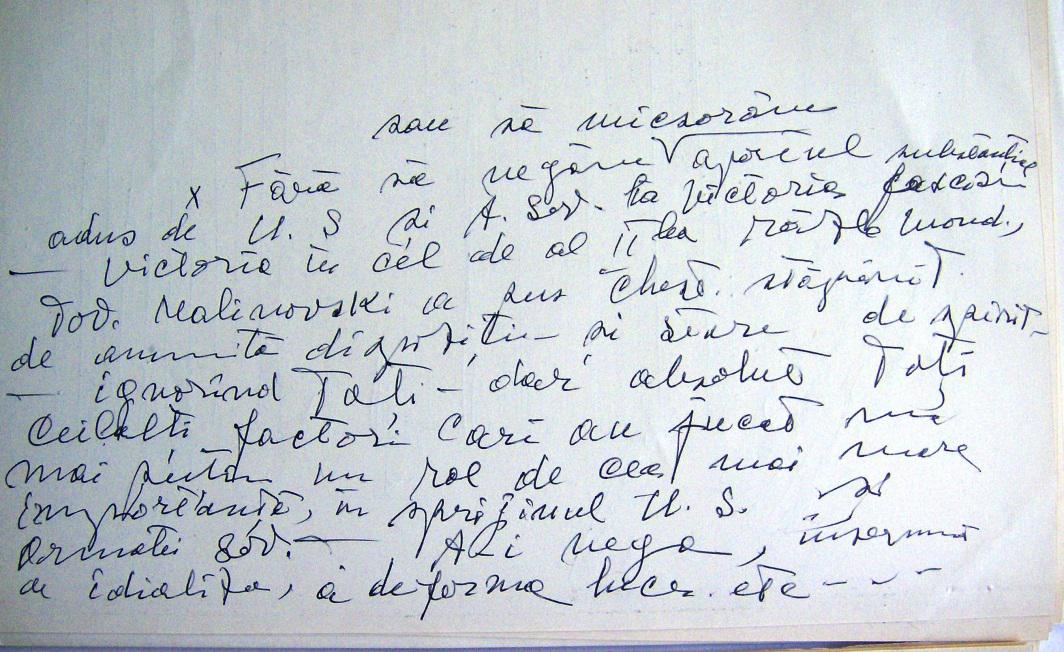 sau să micșorăm
x Fără să negăm √ aportul substanțial
adus de U. S și A. Sov. la victoria fascism
— victoria în cel de al II lea răzb mond.,
Tov. Malinovski a pus chest. stăpînit
de anumită dispoziție și stare de spirit —
— ignorînd toți — dar absolut toți
ceilalți factori cari au jucat nu
mai puțin un rol de cea mai mare
importanță, în sprijinul U. S. și
armatei Sov. — A-i nega, înseamnă
a idializa, a deforma lucr. etc - - -